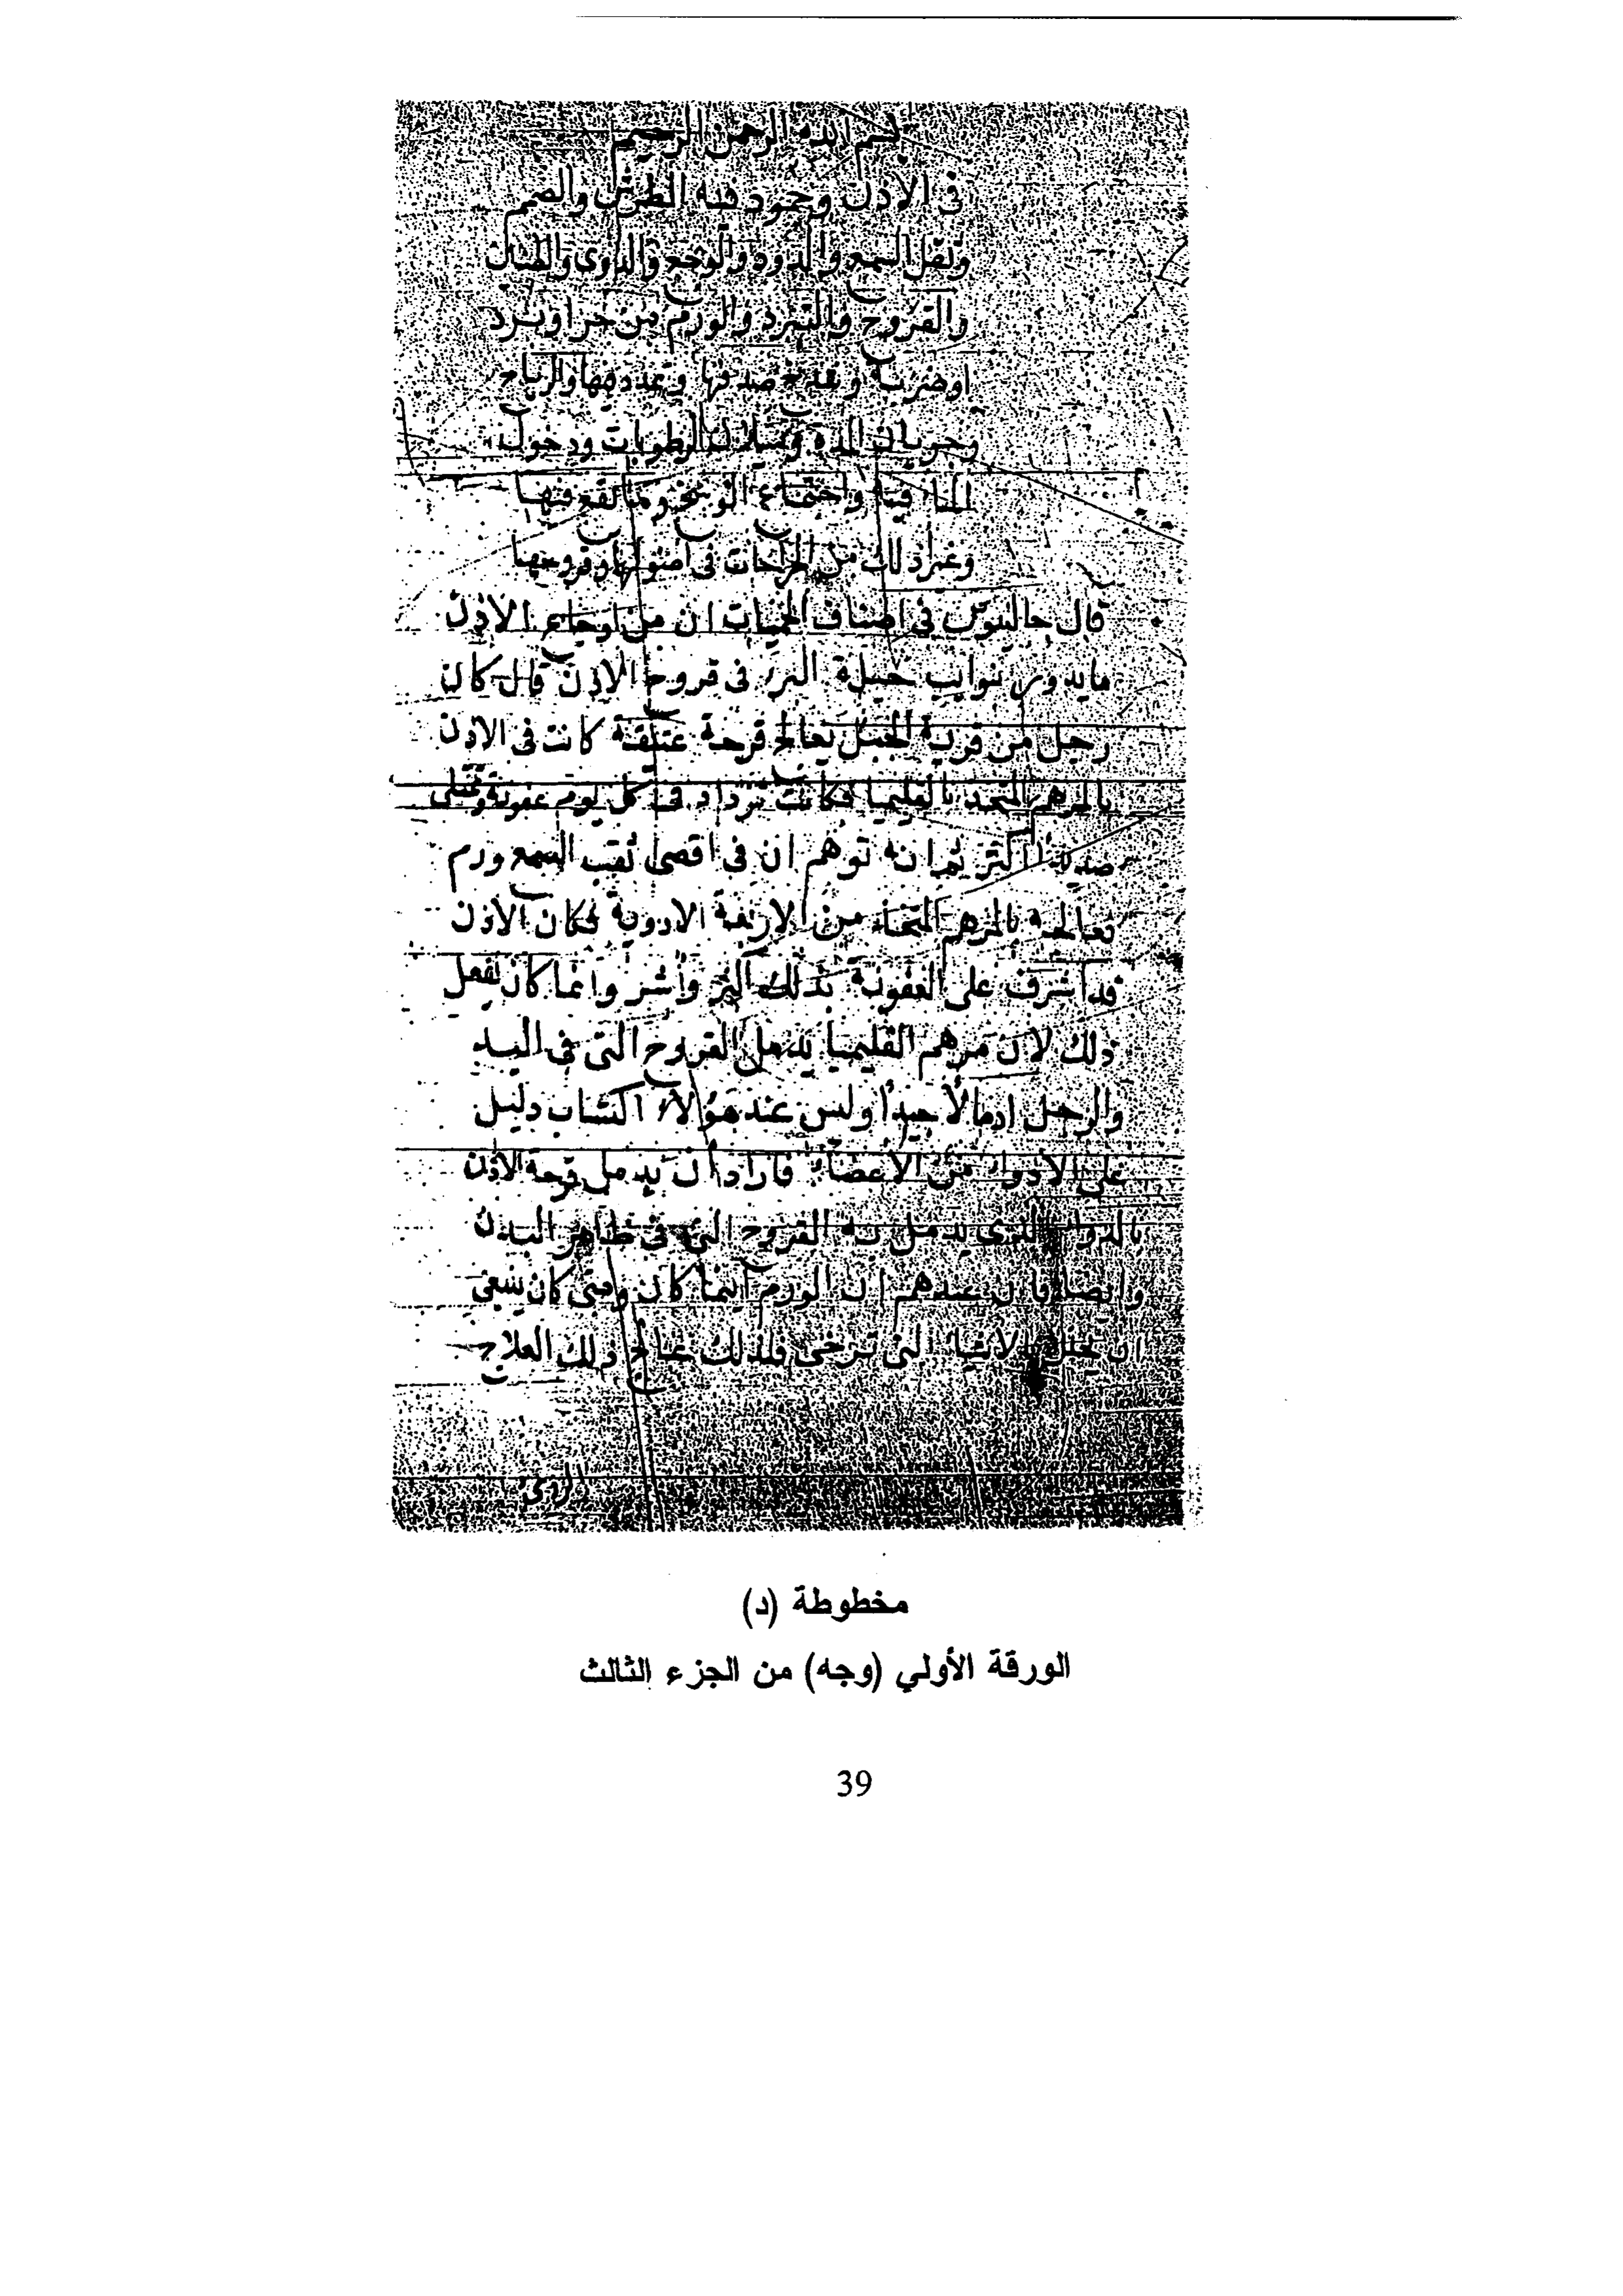 بسم الله الرحمن الرحيم
فى الاذن وجمود فيه الطرش والصمم
وثقل السمع والدود والوجع والدوى والطنين
والقروح والتبرد والورم من حر او برد
او ضربة صدفها وتمدد فيها والرياح
وجريان المدة وسيلان الرطوبات ودخول
الماء فيها واجتماع الوسخ وما يقع فيها
وغير ذلك من الخراجات فى اصولها وقروحها
قال جالينوس فى اصناف الحميات ان من اوجاع الاذن
مايدور بنوايب حيلة البر فى قروح الاذن قال كان
رجل من يعالج قرحة عتيقة كانت فى الاذن
بالمرهم المتخذ بالقليميا فكانت تزداد فى كل يوم عفونة وتمتلى
صديدا اكثر ثم انه توهم ان فى اقصى ثقب السمع ورم
فعالجه بالمرهم المتخذ من الاربعة الادوية فكان الاذن
قد اشرف على العفونة بذلك اكثر واشر وانما كان يفعل
ذلك لان مرهم القليميا يدمل القروح التى فى اليد
والرجل ادمالا جيدا وليس عند هؤلاء اكتساب دليل
على الادواء من الاعضاء فاراد ان يدمل قرحة الاذن
بالدواء الذى يدمل به القروح التى فى ظاهر البدن
وايضا فان عندهم ان الورم اينما كان ومتى كان ينبغى
ان بالاشياء التى ترخى فلذلك عالج ذلك العلاج
مخطوطة (د)
الورقة الأولي (وجه) من الجزء الثالث
39